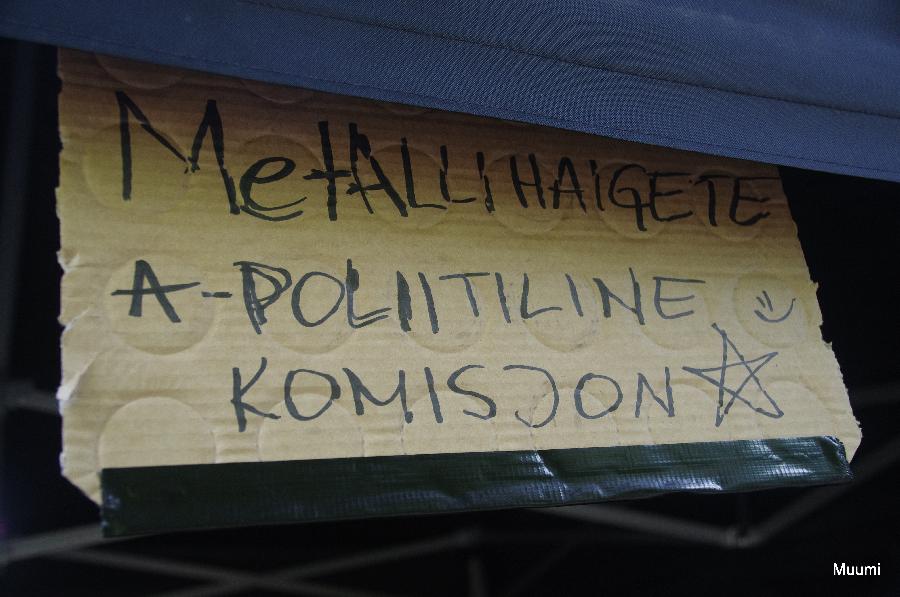 MetALLIHAIGETE
A-POLIITILINE
KOMISJON
Muumi